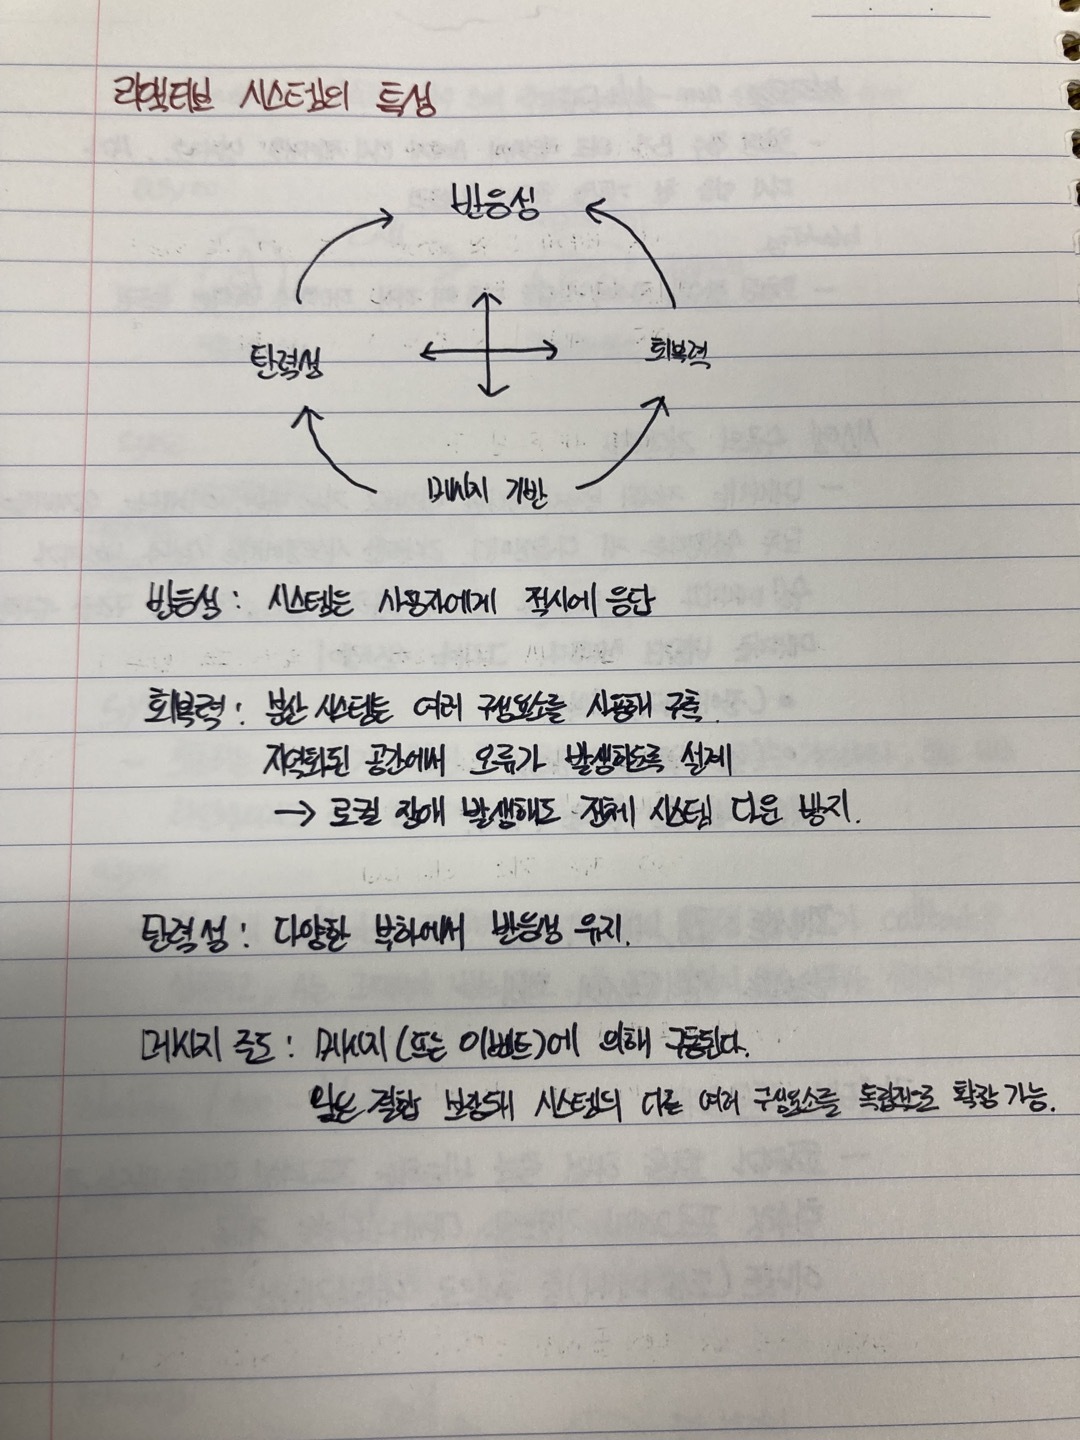 리액티브 시스템의 특성
반응성
탄력성
회복력
메시지 기반
반응성 : 시스템는 사용자에게 적시에 응답
회복력 : 분산 시스템는 여러 구성요소를 사용해 구축.
지역화된 공간에서 오류가 발생하도록 설계
→ 로컬 장애 발생해도 전체 시스템 다운 방지.
탄력성 : 다양한 부하에서 반응성 유지.
메시지 주도 : 메시지(또는 이벤트)에 의해 구동된다.
결합 보장돼 시스템의 다른 여러 구성요소를 독립적으로 확장 가능.